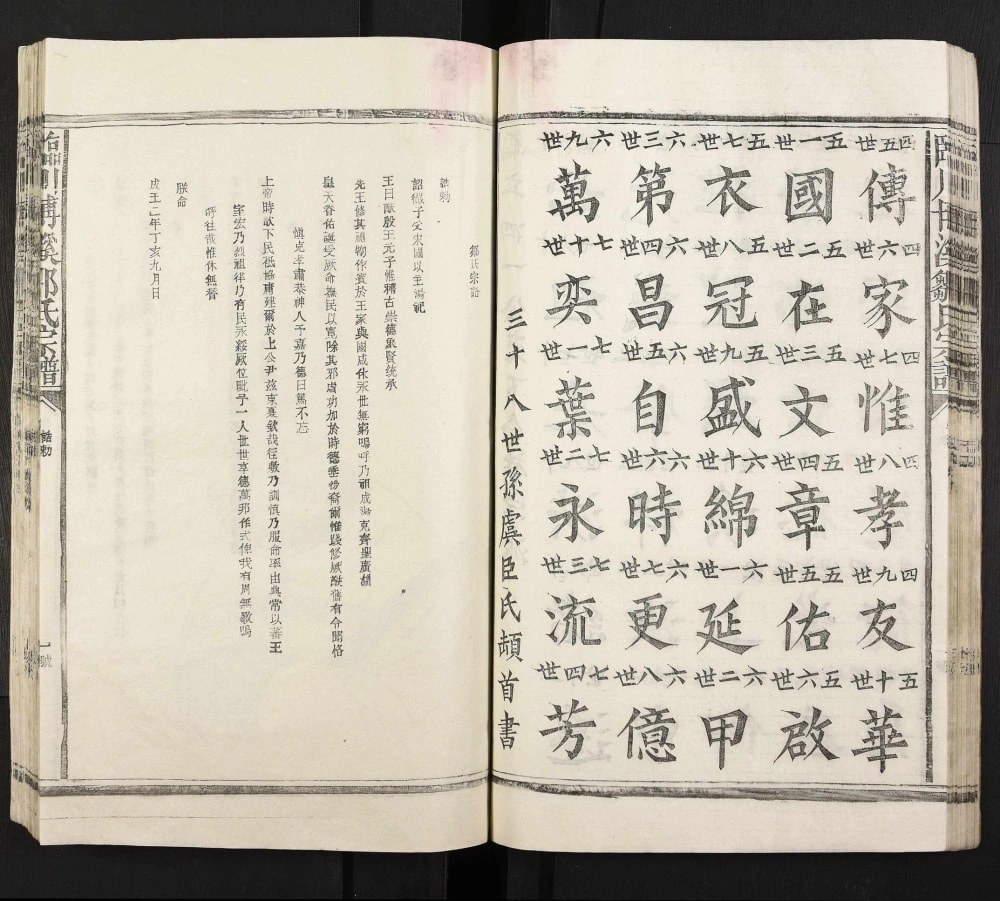 四五世 傳 四六世 家 四七世 惟 四八世 孝 四九世 友 五十世 華
五一世 國 五二世 在 五三世 文 五四世 章 五五世 佑 五六世 啟
五七世 衣 五八世 冠 五九世 盛 六十世 綿 六一世 延 六二世 甲
六三世 第 六四世 昌 六五世 自 六六世 時 六七世 更 六八世 億
六九世 萬 七十世 奕 七一世 葉 七二世 永 七三世 流 七四世 芳
三十八世孫虞臣氏頓首書
鄒氏宗譜
誥勅
詔微子受宋國以主湯祀
王曰猷殷王元子惟稽古崇德象賢統承
先王修其禮物作賓於王家與國咸休永世無窮嗚呼乃祖成湯克齊聖廣淵
皇天眷佑誕受厥命撫民以寬除其邪虐功加於時德垂後裔爾惟踐修厥猷舊有令聞恪
慎克孝肅恭神人予嘉乃德曰篤不忘
上帝時歆下民祗協庸建爾於上公尹茲東夏欽哉往敷乃訓慎乃服命率由典常以蕃王
室宏乃烈祖律乃有民永綏厥位毗予一人世世享德萬邦作式俾我有周無斁嗚
呼往哉惟休無替
朕命
成王二年丁亥九月日
溪鄒氏宗譜
誥勅
一號